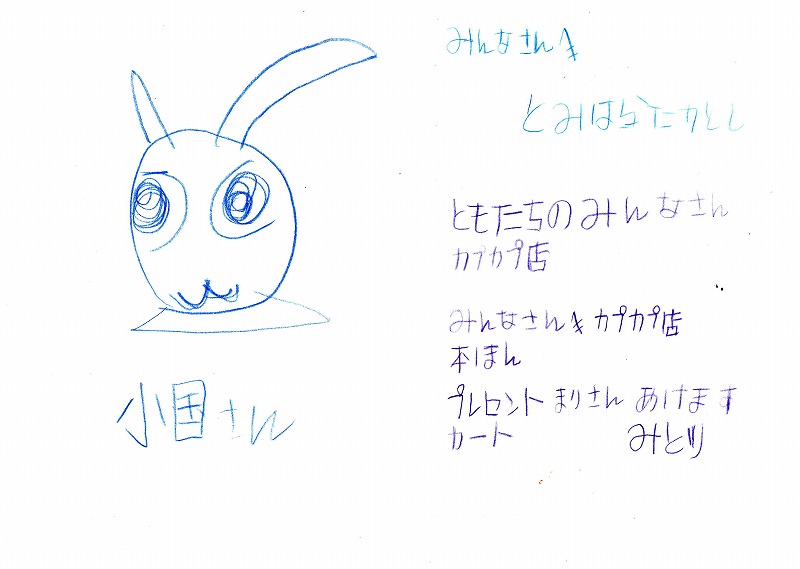 小国さん
みんなさんも
とみはらたかとし
ともたちのみんなさん
カプカプ店
みんなさんも カプカプ店
本ほん
プレセント まりさん あげます
カート みどり